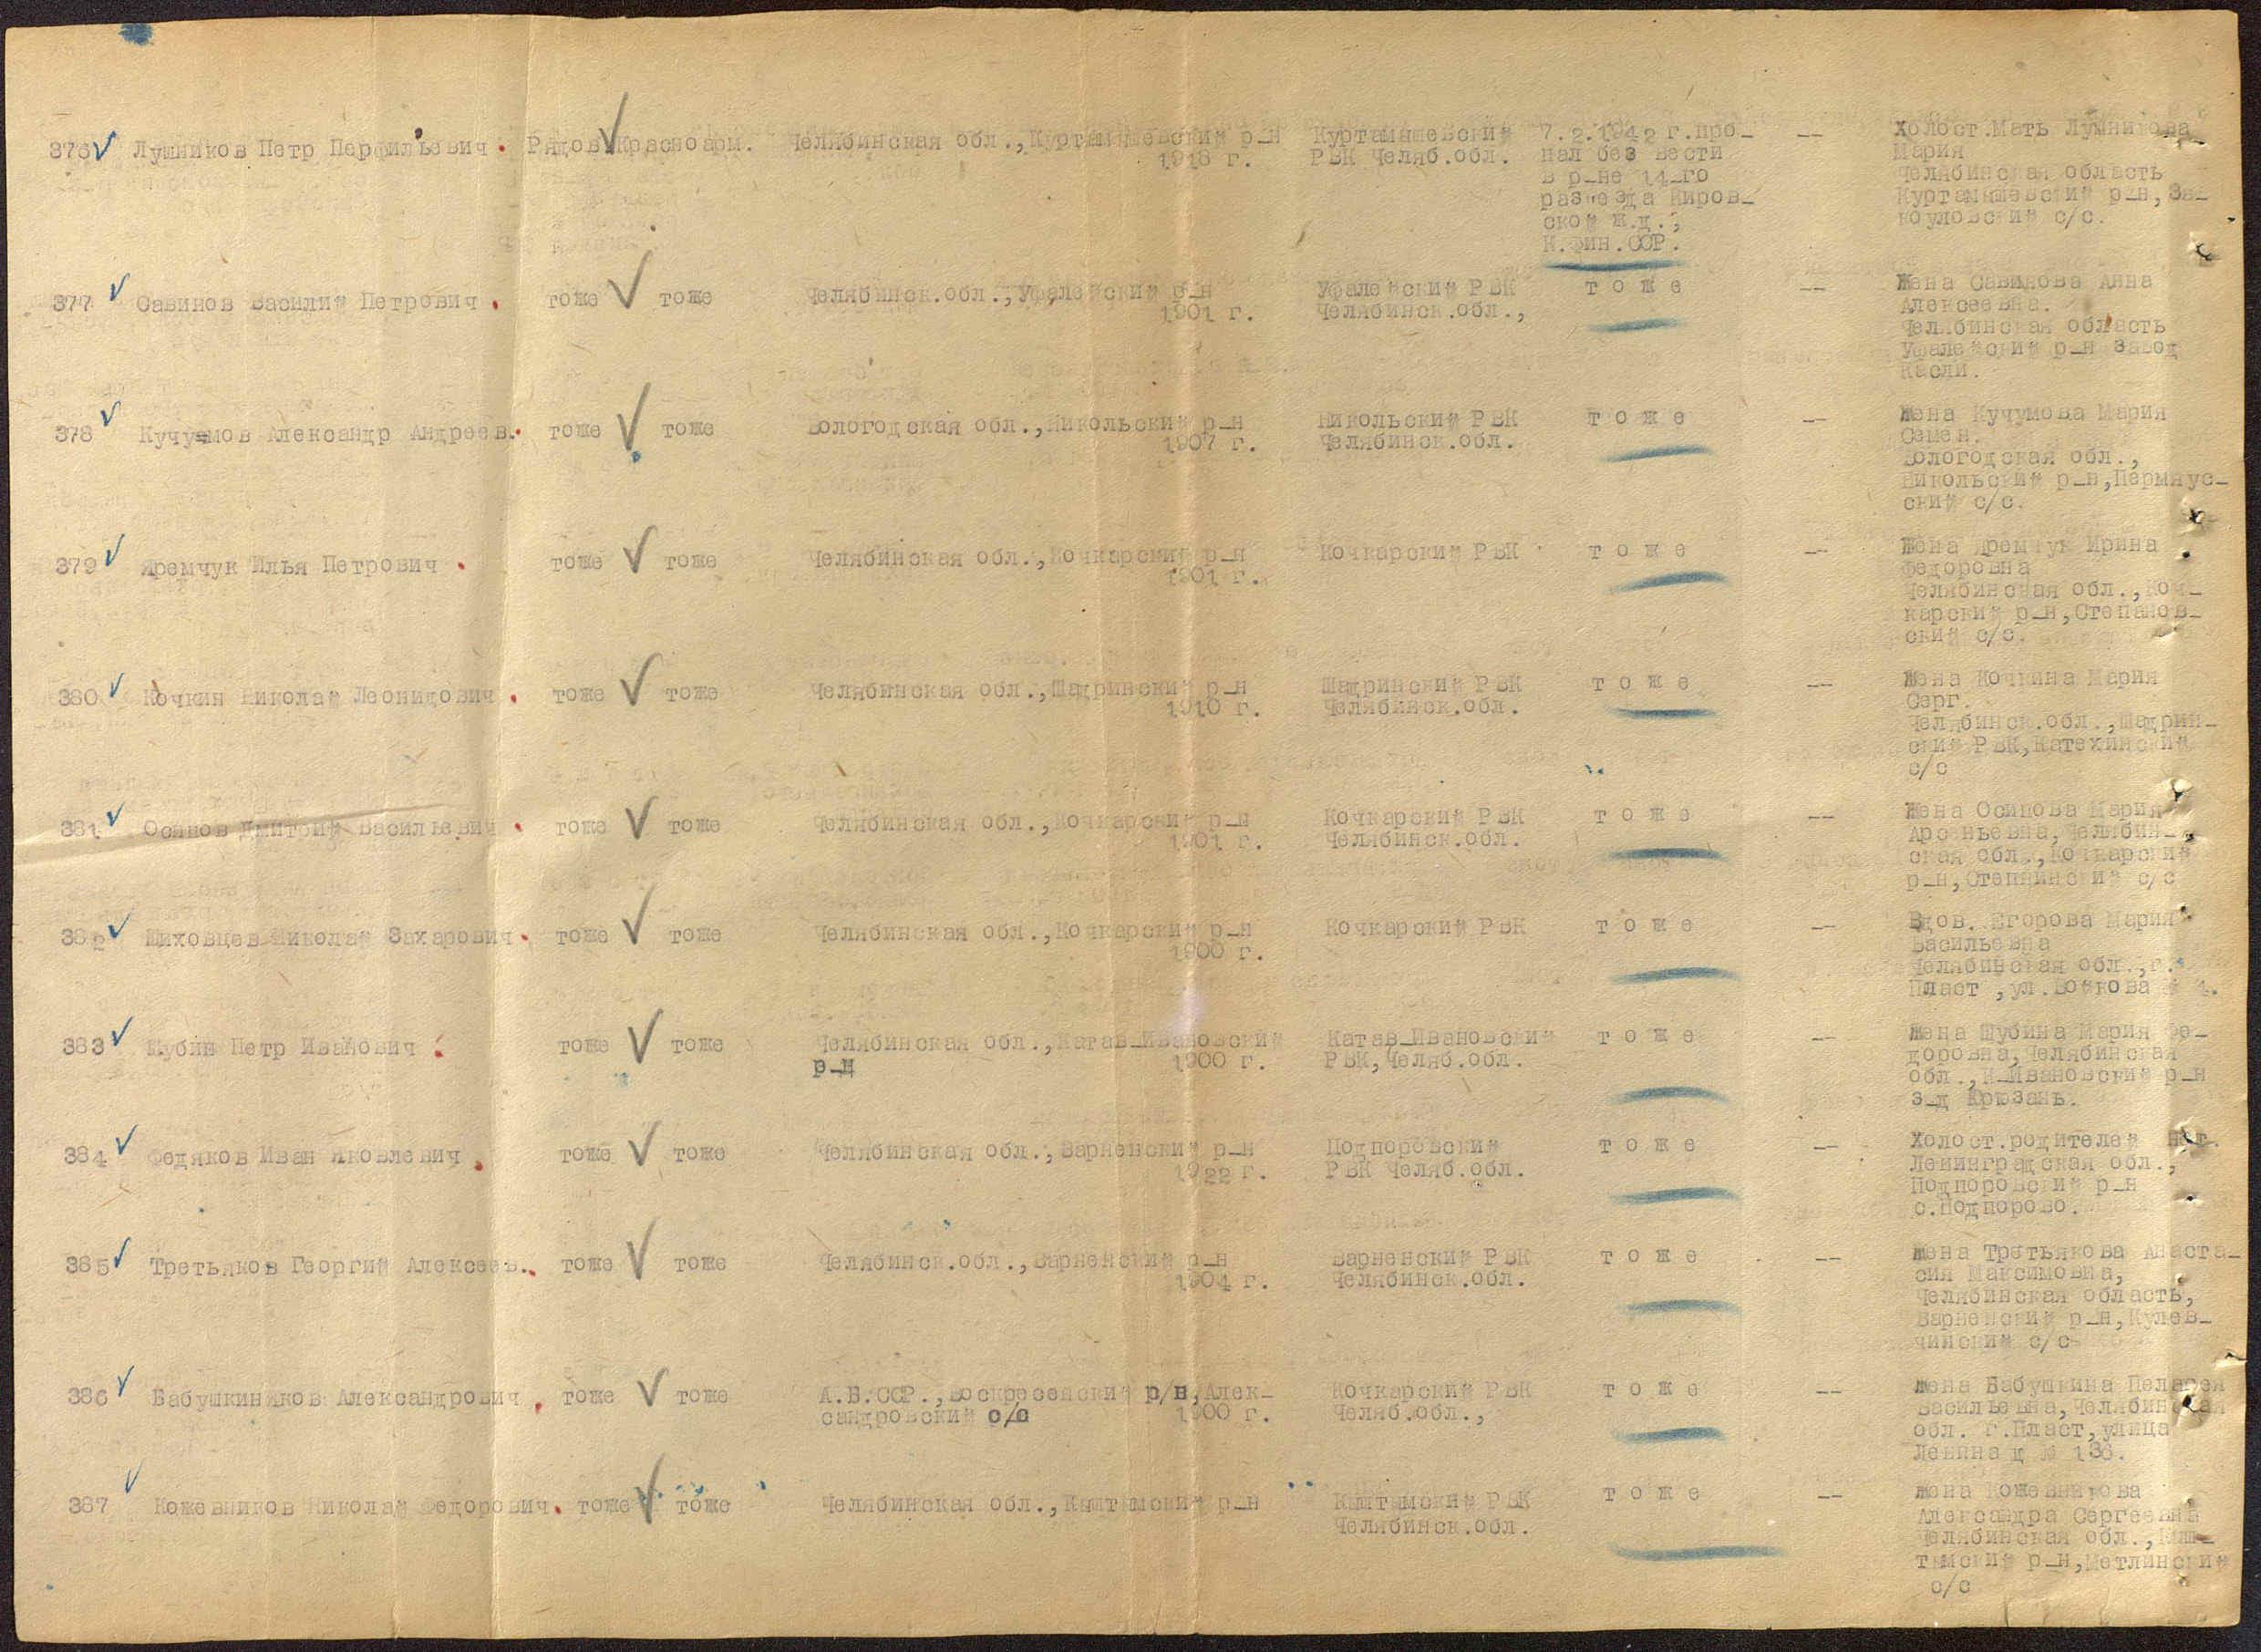 376 Лушников Петр Перфильевич. Рядов Красноарм. Челябинская обл., Куртамышевский р-н Куртамашевский 7.2.1942 г. про- -- Холост. Мать Лушникова
1918 г. РВК Челяб.обл. пал без вести Мария
в р-не 14-го Челябинская область
раз"езда Киров- Куртамышевский р-н, За-
ской ж.д., коуловский с/с.
К.Фин.ССР.
377 Савинов Василий Петрович. тоже тоже Челябинск.обл., Уфалейский р-н Уфалейский РВК тоже -- Жена Савинова Анна
1901 г. Челябинск.обл., Алексеевна.
Челябинская область
Уфалейский р-н завод
Касли.
378 Кучумов Александр Андреев. тоже тоже Вологодская обл., Никольский р-н Никольский РВК тоже -- Жена Кучумова Мария
1907 г. Челябинск.обл. Семен.
Вологодская обл.,
Никольский р-н, Пермяус-
ский с/с.
379 Яремчук Илья Петрович. тоже тоже Челябинская обл., Кочкарский р-н Кочкарский РВК тоже -- Жена Яремчук Ирина
1901 г. Федоровна
Челябинская обл., Коч-
карский р-н, Степанов-
ский с/с.
380 Кочкин Николай Леонидович. тоже тоже Челябинская обл., Шадринский р-н Шадринский РВК тоже -- Жена Кочкина Мария
1910 г. Челябинск.обл. Серг.
Челябинск.обл., Шадрин-
ский РВК, Катехинский
с/с
381 Осипов Дмитрий Васильевич. тоже тоже Челябинская обл., Кочкарский р-н Кочкарский РВК тоже -- Жена Осипова Мария
1901 г. Челябинск.обл. Арсеньевна, Челябин-
ская обл., Кочкарский
р-н, Степнинский с/с
382 Шиховцев Николай Захарович. тоже тоже Челябинская обл., Кочкарский р-н Кочкарский РВК тоже -- Вдов. Егорова Мария
1900 г. Васильевна
Челябинская обл., г.
Пласт, ул. Войкова
383 Шубин Петр Иванович. тоже тоже Челябинская обл., Катав-Ивановский Катав-Ивановский тоже -- Жена Шубина Мария Фе-
р-н 1900 г. РВК, Челяб.обл. доровна, Челябинская
обл., К-Ивановский р-н
з-д Крюзань.
384 Федяков Иван Яковлевич. тоже тоже Челябинская обл., Варненский р-н Подпоровский тоже -- Холост. родителей нет.
1922 г. РВК Челяб.обл. Ленинградская обл.,
Подпоровский р-н
с. Подпорово.
385 Третьяков Георгий Алексеев. тоже тоже Челябинск.обл., Варненский р-н Варненский РВК тоже -- Жена Третьякова Анаста-
1904 г. Челябинск.обл. сия Максимовна,
Челябинская область,
Варненский р-н, Кулев-
чинский с/с
386 Бабушкин Яков Александрович. тоже тоже А.Б.ССР., Воскресенский р/н, Алек- Кочкарский РВК тоже -- Жена Бабушкина Пелагея
сандровский с/с 1900 г. Челяб.обл., Васильевна, Челябинская
обл. г. Пласт, улица
Ленина д № 136.
387 Кожевников Николай Федорович. тоже тоже Челябинская обл., Кыштымский р-н Кыштымский РВК тоже -- Жена Кожевникова
Челябинск.обл. Александра Сергеевна
Челябинская обл., Кыш-
тымский р-н, Метлинский
с/с